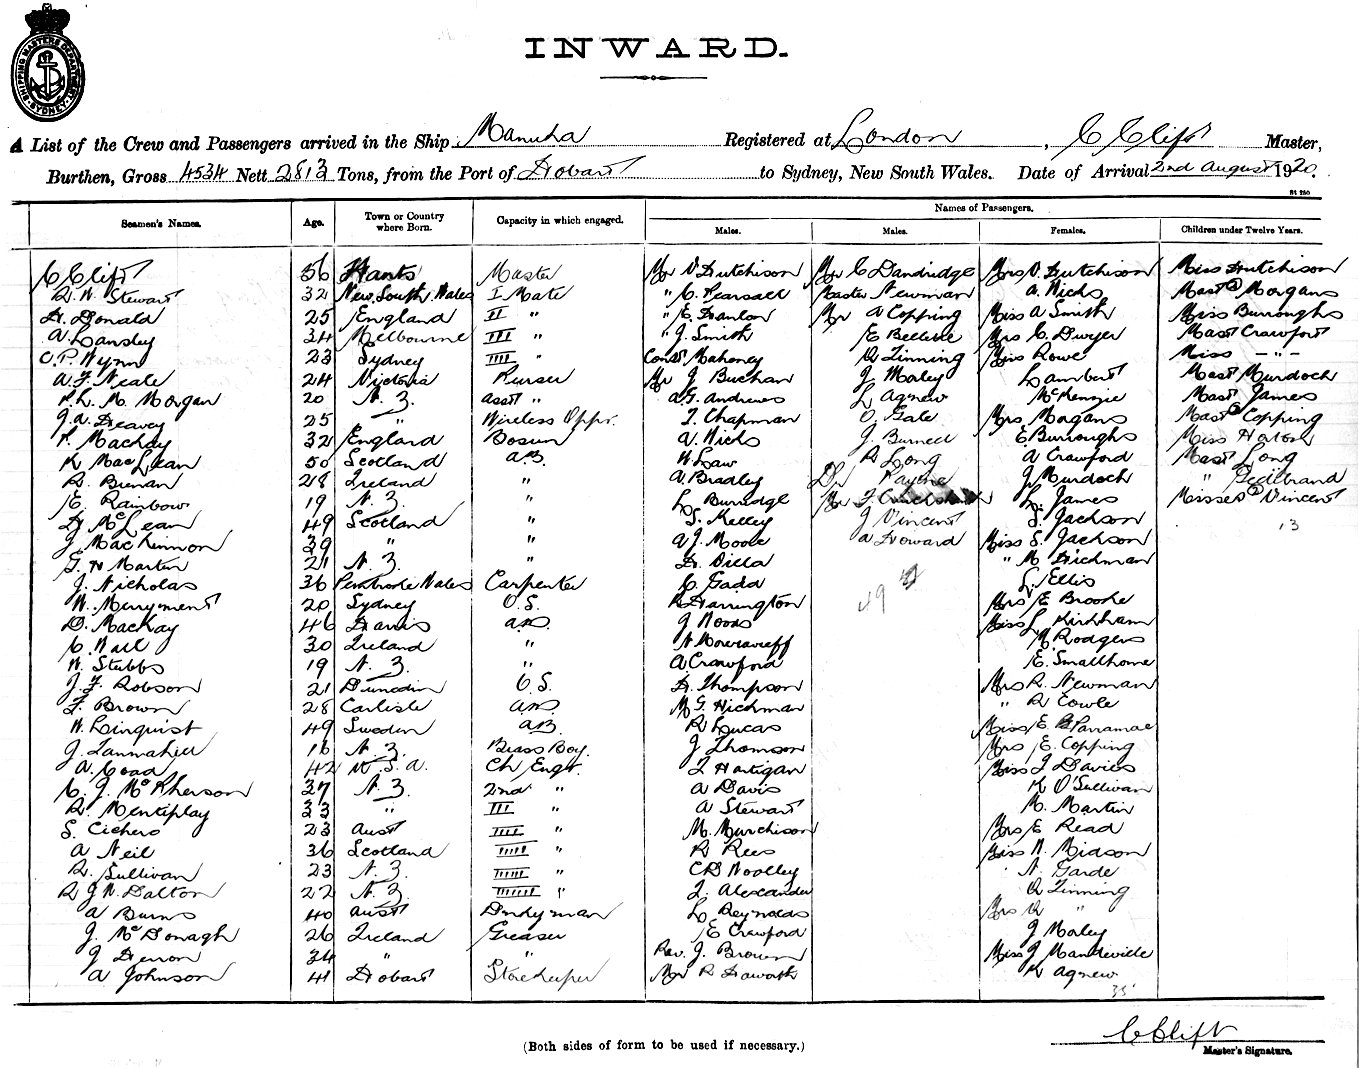 SHIPPING MASTERS DEPARTMENT SYDNEY
INWARD.
A List of the Crew and Passengers arrived in the Ship Manuka Registered at London, C Clift Master,
Burthen, Gross 4534 Nett 2813 Tons, from the Port of Hobart to Sydney, New South Wales. Date of Arrival 2nd August 1920.
St 280
Names of Passengers.
Seamen's Names. Age. Town or Country where Born. Capacity in which engaged. Males. Males. Females. Children under Twelve Years.
C Clift 56 Hants Master Mr V Hutchison Mr C Dandridge Mrs V Hutchison Miss Hutchison
R. W. Stewart 32 New South Wales I Mate " C. Pearsall Master Newman A. Nicks Mast Morgans
H. Donald 25 England II " " E. Hanlon Mr A Copping Miss A Smith Miss Burroughs
A Lansley 34 Melbourne III " " J. Smith E Bellette Mrs C Dwyer Mast Crawford
O. P. Wynn 23 Sydney IIII " Const Mahoney Q Tinning Miss Rowe Miss - " -
A. F. Neale 24 Victoria Purser Mr J Buchan J Morley Lambert Mast Murdoch
P. L. M. Morgan 20 N. Z. asst " A. G. Andrews L Agnew McKenzie Mast James
J. A. Heavey 25 " Wireless Oppr. T. Chapman O. Gale Mrs Morgans Mast Copping
P. Mackay 32 England Bosun A. Nicks J. Burnell E. Burroughs Miss Horton
K MacLean 50 Scotland A.B. W Law R Long A Crawford Mast Long
R. Birnan 28 Ireland " A. Bradley Dr Payne J Murdoch " Gellibrand
E. Rainbow 19 N. Z. " L Burridge Mr F L. James Misses Vincent
H McLean 49 Scotland " S. Kelley J Vincent S. Jackson 13
J. MacKinnon 39 " " A J. Moore A Howard Miss S. Jackson
T. H Martin 21 N. Z. " H. Dilla " M Hickman
J. Nicholas 36 Pembroke Wales Carpenter C. Gadd 49 L. Ellis
W. Merryment 20 Sydney O. S. R Harrington Mrs E Brooke
D. MacKay 46 Harris A.B. J Woods Miss L Kirkham
C. Nail 30 Ireland " M Rodgers
W. Stubbs 19 N. Z. " A Crawford E. Smallhorne
J. F. Robson 21 Dunedin O. S. H. Thompson Mrs R. Newman
F. Brown 28 Carlisle A.B. M G. Hickman " R Cowle
W. Linquist 49 Sweden A.B. R Lucas Miss E. B Parramae
J. Tannahill 16 N. Z. Brass Boy. J Thomson Mrs E. Copping
A. Coad 42 U. S. A. Ch Engr. T Hartigan Miss J Davies
C. J. McPherson 37 N. Z. 2nd " A Davis K O'Sullivan
R. Mentiplay 33 " III " A Stewart M. Martin
S. Cichero 23 Aust IIII " M. Murchison Mrs E Read
A Neil 36 Scotland IIIII " R Rees Miss N. Midson
R. Sullivan 23 N. Z. IIIII " C D Woolley N. Garde
R J W. Dalton 22 N. Z. IIIIII " T. Alexander Q Tinning
A Burns 40 Aust Dnkyman L Reynolds Mrs Q "
J. McDonagh 26 Ireland Greaser E Crawford J Morley
J Heron 34 " " Rev. J. Brown Miss J Mandeville
A Johnson 41 Hobart Storekeeper Mr R Haworth K Agnew
35
C Clift
Master's Signature.
(Both sides of form to be used if necessary.)